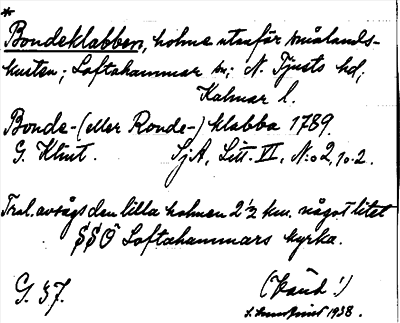 *
Bondeklabben, holme utanför Smålands-
kusten; Loftahammar sn; N. Tjusts hd;
Kalmar l.
Bonde- (eller Ronde-) klabba 1789.
G. Klint. SjA, Litt. VI, N:o 2, 10-2.
Trol. avsågs den lilla holmen 2 ½ km. något litet
SSÖ Loftahammars kyrka.
G. 37.
1938.